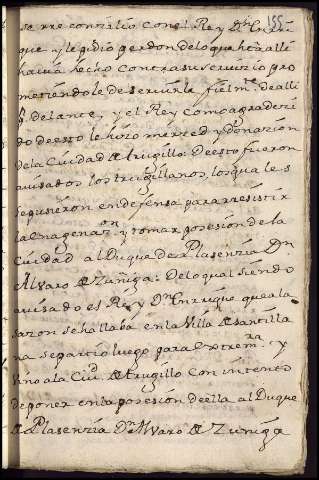 155
se rreconsilió con el Rey Dn Enrri
que y le pidio perdon de lo que hasta alli
havia hecho contra su servizio pro
metiendole de servirla fielmte de alli
delante, y el Rey como agradezi
do de esto le hizo merced y donazion
de la Ciudad de trugillo: De esto fueron
avisados los trugillanos, los quales
se pusieron en defensa para rresistir
la Enagenazon y tomar posesion de la
Ciudad al Duque de Plasenzia Dn
Alvaro de Zuñiga: De lo qual siendo
avisado el Rey Dn Enrrique que a la
sazon se hallaba en la Villa de santilla
na se partio luego para Extremra y
vino a la Ciud de trugillo con intento
de poner en la posesion de ella al Duque
de Plasenzia Dn Alvaro de Zuñiga